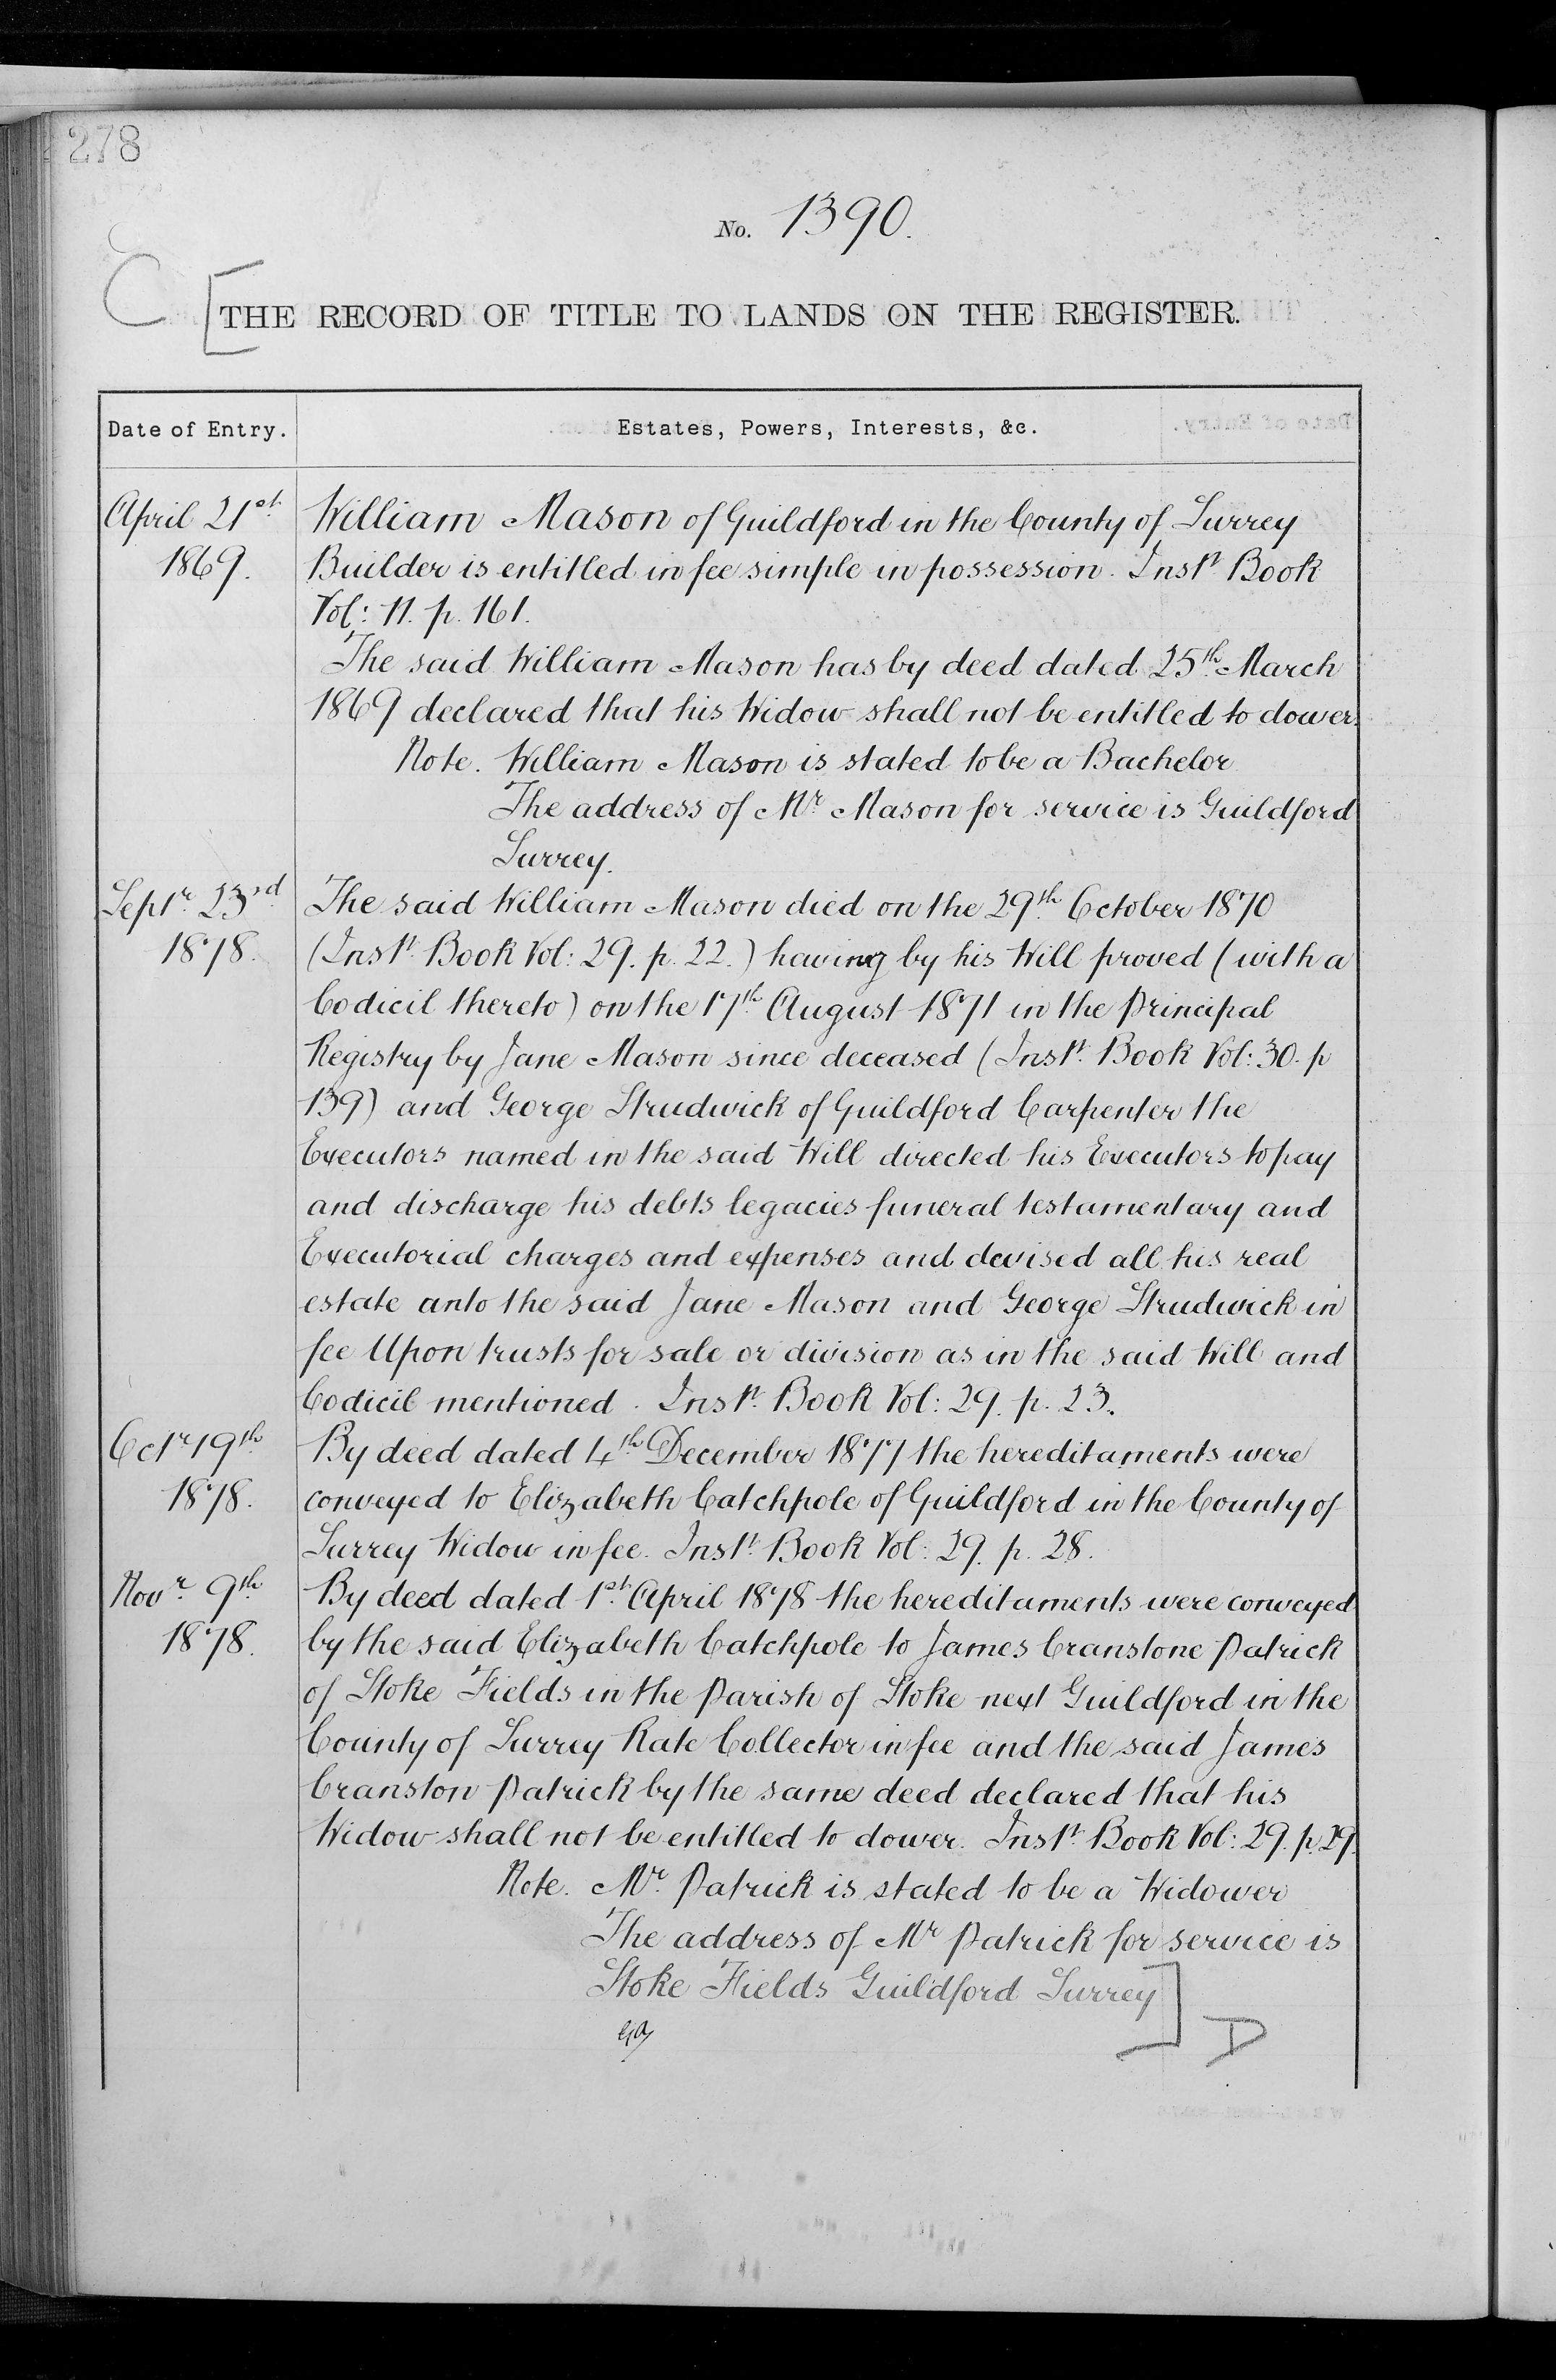 278
No. 1390.
C
THE RECORD OF TITLE TO LANDS ON THE REGISTER.
Date of Entry. Estates, Powers, Interests, &c.
April 21st William Mason of Guildford in the County of Surrey
1869. Builder is entitled in fee simple in possession. Instt. Book
Vol: 11. p. 161.
The said William Mason has by deed dated 25th March
1869 declared that his Widow shall not be entitled to dower.
Note. William Mason is stated to be a Bachelor
The address of Mr Mason for service is Guildford
Surrey.
Septr. 23rd The said William Mason died on the 29th October 1870
1878. (Instt. Book Vol: 29. p. 22.) having by his Will proved (with a
Codicil thereto) on the 17th August 1871 in the Principal
Registry by Jane Mason since deceased (Instt. Book Vol: 30. p
139) and George Strudwick of Guildford Carpenter the
Executors named in the said Will directed his Executors to pay
and discharge his debts legacies funeral testamentary and
Executorial charges and expenses and devised all his real
estate unto the said Jane Mason and George Strudwick in
fee Upon trusts for sale or division as in the said Will and
Codicil mentioned. Instt. Book Vol: 29. p. 23.
Octr 19th By deed dated 4th December 1877 the hereditaments were
1878. conveyed to Elizabeth Catchpole of Guildford in the County of
Surrey Widow in fee. Instt. Book Vol: 29. p. 28.
Novr 9th By deed dated 1st April 1878 the hereditaments were conveyed
1878. by the said Elizabeth Catchpole to James Cranstone Patrick
of Stoke Fields in the Parish of Stoke next Guildford in the
County of Surrey Rate Collector in fee and the said James
Cranston Patrick by the same deed declared that his
Widow shall not be entitled to dower. Instt. Book Vol: 29. p. 29.
Note. Mr. Patrick is stated to be a Widower
The address of Mr Patrick for service is
Stoke Fields Guildford Surrey
D